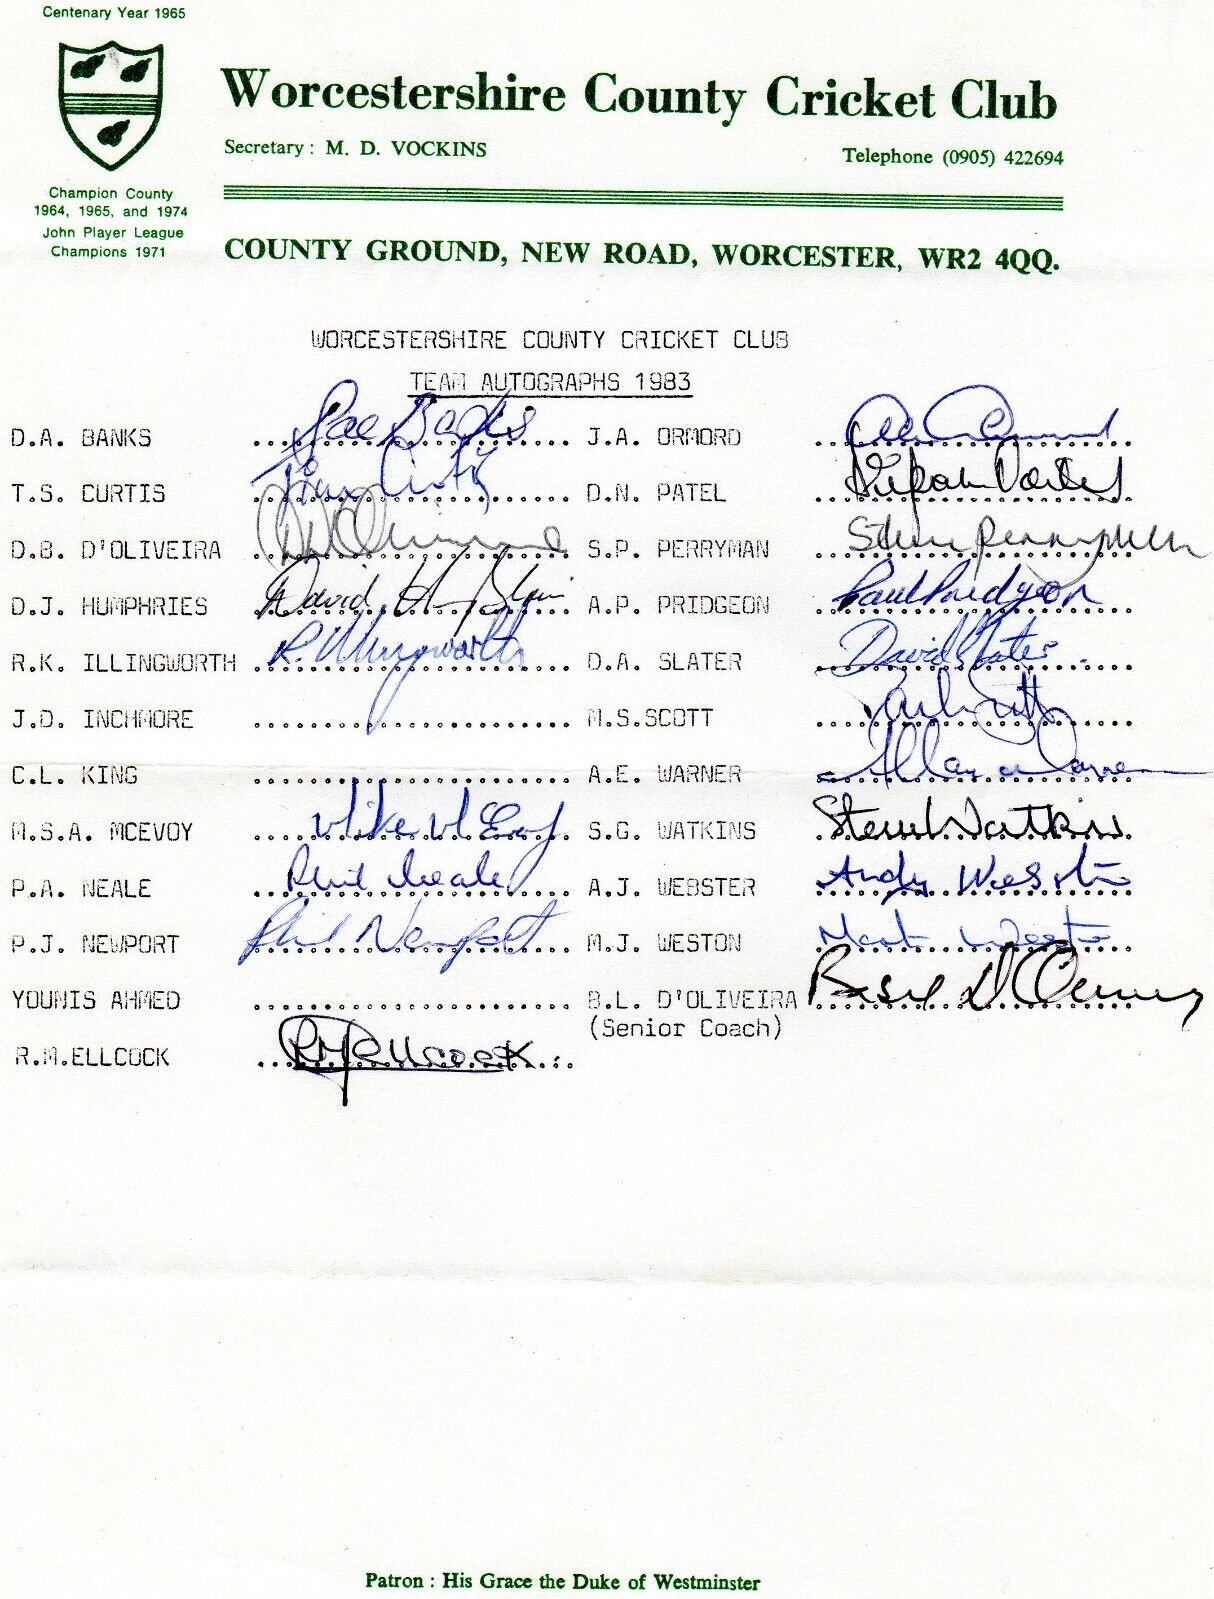 Centenary Year 1965
Worcestershire County Cricket Club
Secretary : M. D. VOCKINS
Telephone (0905) 422694
Champion County
1964, 1965, and 1974
John Player League
Champions 1971
COUNTY GROUND, NEW ROAD, WORCESTER, WR2 4QQ.
WORCESTERSHIRE COUNTY CRICKET CLUB
TEAM AUTOGRAPHS 1983
D.A. BANKS Banks J.A. ORMORD
T.S. CURTIS Tim Curtis D.N. PATEL Dipak Patel
D.B. D'OLIVEIRA S.P. PERRYMAN Steve Perryman
D.J. HUMPHRIES David Humphries A.P. PRIDGEON Paul Pridgeon
R.K. ILLINGWORTH R. Illingworth D.A. SLATER David Slater
J.D. INCHMORE M.S.SCOTT
C.L. KING A.E. WARNER Allan Warner
M.S.A. MCEVOY Mike McEvoy S.G. WATKINS Steve Watkins
P.A. NEALE Phil Neale A.J. WEBSTER Andy Webster
P.J. NEWPORT Phil Newport M.J. WESTON Martin Weston
YOUNIS AHMED B.L. D'OLIVEIRA Basil D'Oliveira
(Senior Coach)
R.M.ELLCOCK RM Ellcock
Patron : His Grace the Duke of Westminster